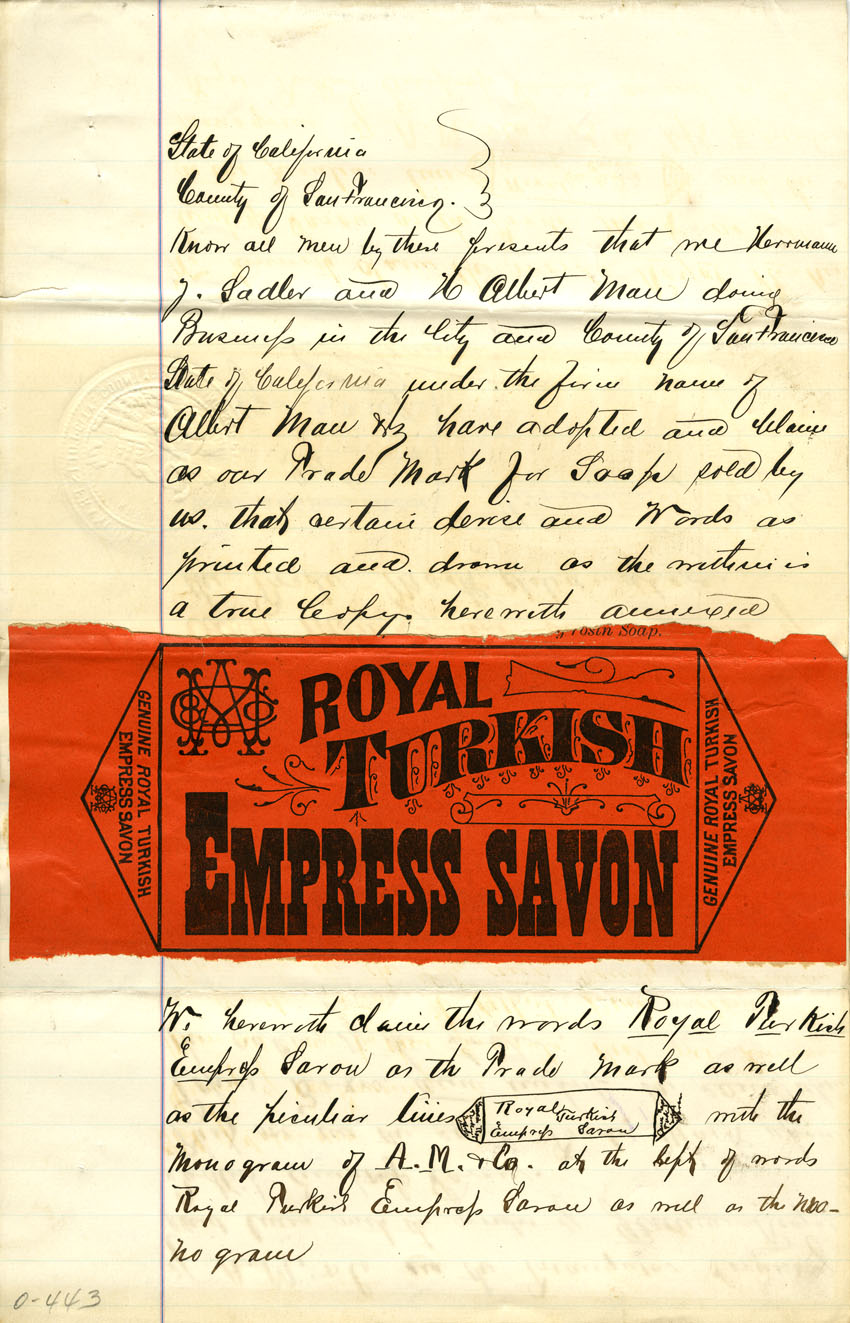 State of California
County of San Francisco.
Know all men by these presents that we Herrmann
J. Sadler and H Albert Mau doing
Business in the City and County of San Francisco
State of California under the firm name of
Albert Mau & Co have adopted and Claim
as our Trade Mark for Soap sold by
us. that certain devise and Words as
printed and drawn as the within is
a true Copy. herewith annexed
rosin Soap.
ROYAL
TURKISH
EMPRESS SAVON
GENUINE ROYAL TURKISH
EMPRESS SAVON
GENUINE ROYAL TURKISH
EMPRESS SAVON
We herewith claim the words Royal Turkish
Empress Savon as th Trade Mark as well
as the peculiar lines Royal Turkish Empress Savon with the
Monogram of A. M. & Co. at the left of words
Royal Turkish Empress Savon as well as the mo-
nogram
0-443